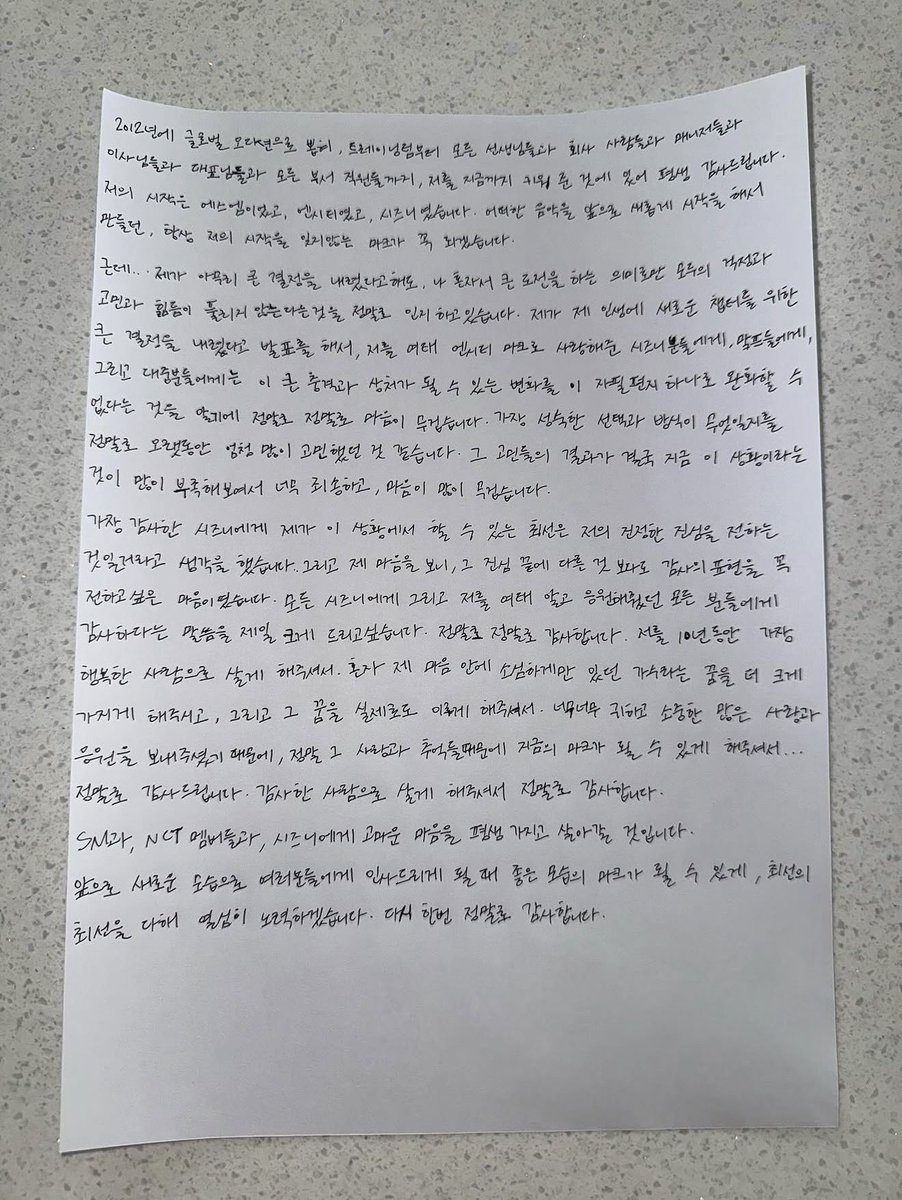 2012년에 글로벌 오디션으로 뽑혀, 트레이닝텀부터 모든 선생님들과 회사 사람들과 매니저들과
이사님들과 대표님들과 모든 부서 직원들까지, 저를 지금까지 키워 준 것에 있어 평생 감사드립니다.
저의 시작은 에스엠이었고, 엔시티였고, 시즈니였습니다. 어떠한 음악을 앞으로 새롭게 시작을 해서
만들던, 항상 저의 시작을 잊지않는 마크가 꼭 되겠습니다.
근데... 제가 아무리 큰 결정을 내렸다고해도, 나 혼자서 큰 도전을 하는 의미로만 모두의 걱정과
고민과 힘듦이 풀리지 않는다는것을 정말로 인지 하고있습니다. 제가 제 인생에 새로운 챕터를 위한
큰 결정을 내렸다고 발표를 해서, 저를 여태 엔시티 마크로 사랑해준 시즈니분들에게, 말프들에게,
그리고 대중분들에게는 이 큰 충격과 상처가 될 수 있는 변화를 이 자필편지 하나로 완화할 수
없다는 것을 알기에 정말로 정말로 마음이 무겁습니다. 가장 성숙한 선택과 방식이 무엇일지를
정말로 오랫동안 엄청 많이 고민했던 것 같습니다. 그 고민들의 결과가 결국 지금 이 상황이라는
것이 많이 부족해보여서 너무 죄송하고, 마음이 많이 무겁습니다.
가장 감사한 시즈니에게 제가 이 상황에서 할 수 있는 최선은 저의 진정한 진심을 전하는
것일거라고 생각을 했습니다. 그리고 제 마음을 보니, 그 진심 끝에 다른 것 보다도 감사의 표현을 꼭
전하고 싶은 마음이였습니다. 모든 시즈니에게 그리고 저를 여태 알고 응원해줬던 모든 분들에게
감사하다는 말씀을 제일 크게 드리고싶습니다. 정말로 정말로 감사합니다. 저를 10년동안 가장
행복한 사람으로 살게 해주셔서. 혼자 제 마음 안에 소심하게만 있던 가수라는 꿈을 더 크게
가지게 해주시고, 그리고 그 꿈을 실제로도 이루게 해주셔서. 너무너무 귀하고 소중한 많은 사랑과
응원을 보내주셨기 때문에, 정말 그 사랑과 추억들때문에 지금의 마크가 될 수 있게 해주셔서...
정말로 감사드립니다. 감사한 사람으로 살게 해주셔서 정말로 감사합니다.
SM과, NCT 멤버들과, 시즈니에게 고마운 마음을 평생 가지고 살아갈 것입니다.
앞으로 새로운 모습으로 여러분들에게 인사드리게 될 때 좋은 모습의 마크가 될 수 있게, 최선의
최선을 다해 열심히 노력하겠습니다. 다시 한번 정말로 감사합니다.